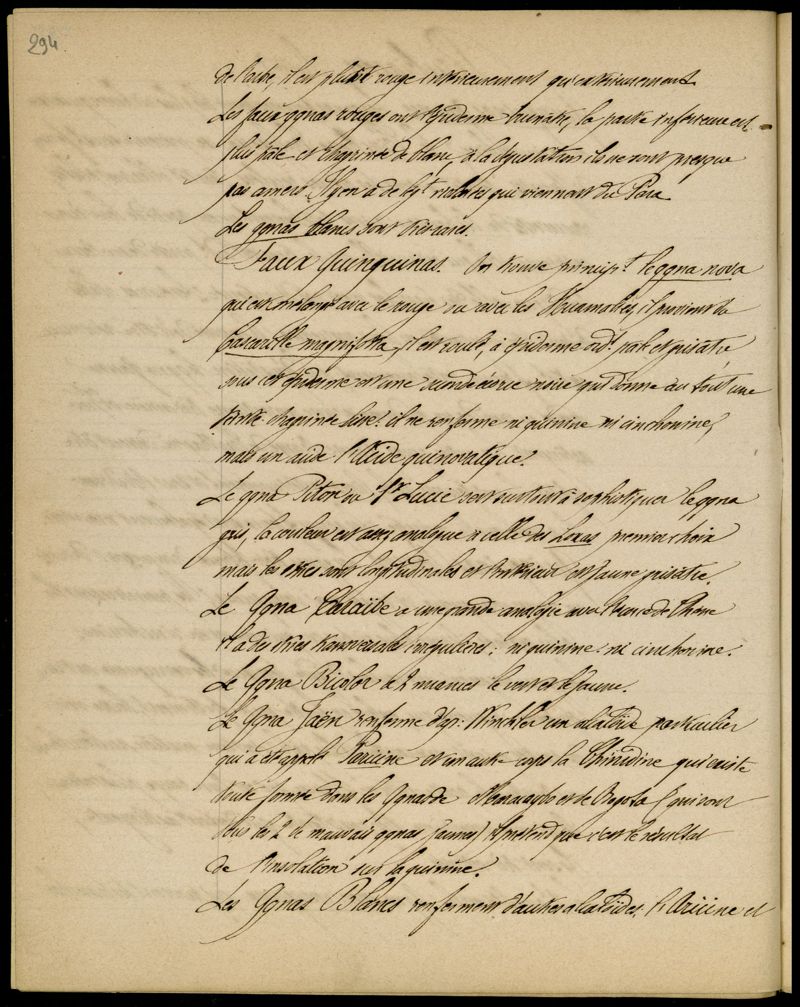 294
de l'autre, il est plutôt rouge intérieurement qu'extérieurement
Les faux qqnas rouges ont l'épiderme brunâtre, la partie inférieure est
plus pâle et chagrinée de blanc à la dégustation ils ne sont presque
pas amers. Il y en a de très qui viennent du Para
Les qqnas blancs sont très rares.
Faux Quinquinas. On trouve principt. le qqna nova
qui est mélangé avec le rouge ou avec les Huamaliés, il provient du
Cascarilla magnifolia, il est roulé, à épiderme ordt. pâle et grisâtre
sous cet épiderme est une seconde écorce noire qui donne au tout une
teinte chagrinée il ne renferme ni quinine ni cinchonine,
mais un acide l'Acide quinovatique.
Le qqna Piton ou Ste Lucie sert surtout à sophistiquer le qqna
gris, la couleur est assez analogue à celle des Loxas premier choix
mais les stries sont longitudinales et l'intérieur est jaune grisâtre.
Le Qqna Caraïbe a une grande analogie avec l'écorce de Chêne
Il a des stries transversales irrégulières: ni quinine! ni cinchonine.
Le Qqna Bicolor à 2 nuances le vert et le jaune.
Le Qqna Jaën renferme d'ap: Winckler un alcaloïde particulier
qui a été appelé Paricine et un autre corps la Chinidine qui existe
toute formée dans les Qqnas de Maracaybo et de Bogota (qui sont
tous les 2 de mauvais qqnas jaunes) Il prétend que c'est le résultat
de l'insolation sur la quinine.
Les Qqnas Blancs renferment d'autres alcaloïdes. l'Aricine et